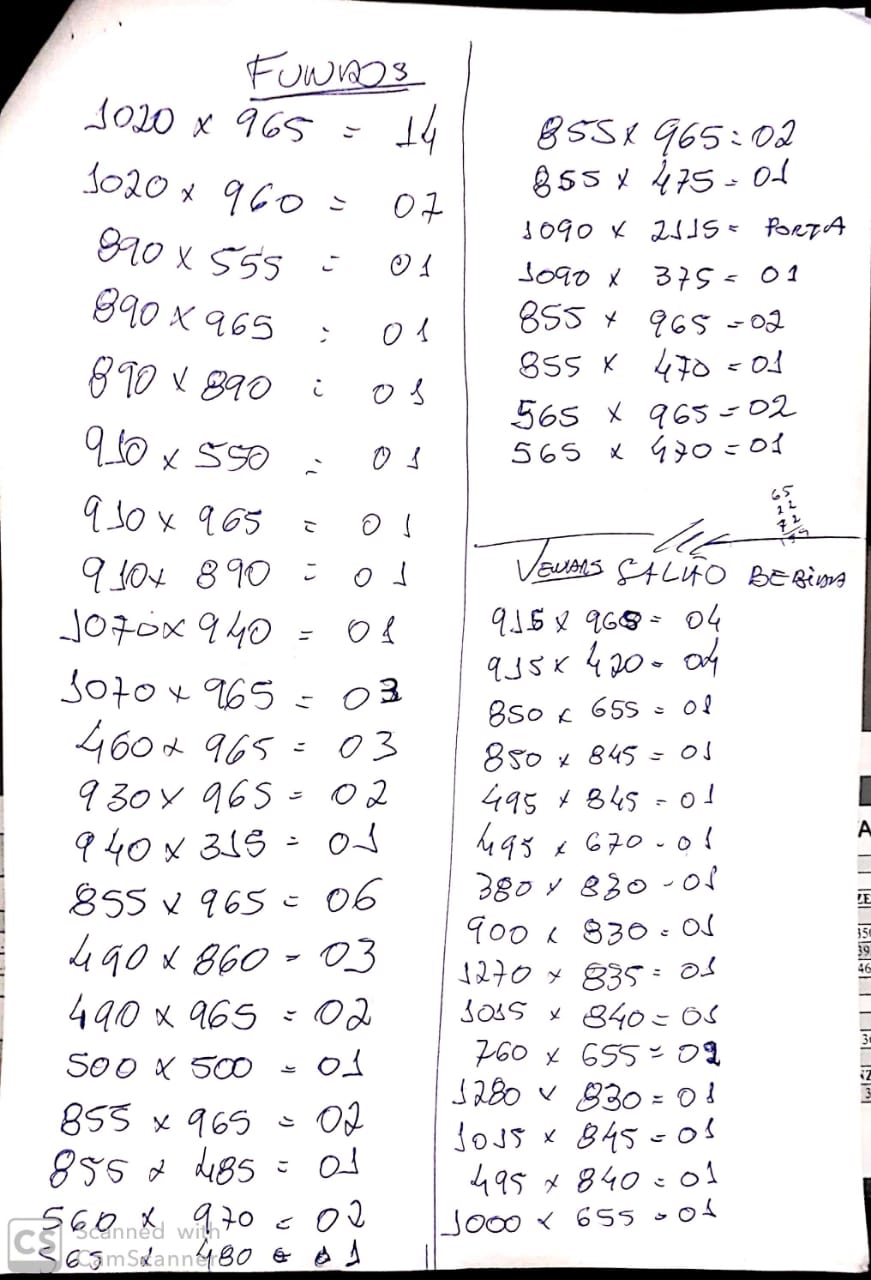 FUNDOS
1020 x 965 = 14
1020 x 960 = 07
890 x 555 = 01
890 x 965 = 01
890 x 890 = 01
910 x 550 = 01
910 x 965 = 01
910 x 890 = 01
1070 x 940 = 01
1070 x 965 = 03
460 x 965 = 03
930 x 965 = 02
940 x 315 = 01
855 x 965 = 06
490 x 860 = 03
490 x 965 = 02
500 x 500 = 01
855 x 965 = 02
855 x 485 = 01
560 x 970 = 02
565 x 480 = 01
CS Scanned with
CamScanner
855 x 965 = 02
855 x 475 = 01
1090 x 2115 = PORTA
1090 x 375 = 01
855 x 965 = 02
855 x 470 = 01
565 x 965 = 02
565 x 470 = 01
65
22
72
SALÃO BEBIDA
915 x 965 = 04
915 x 420 = 04
850 x 655 = 01
850 x 845 = 01
495 x 845 = 01
495 x 670 = 01
380 x 830 = 01
900 x 830 = 01
1270 x 835 = 01
1015 x 840 = 01
760 x 655 = 02
1280 x 830 = 01
1015 x 845 = 01
495 x 840 = 01
1000 x 655 = 01